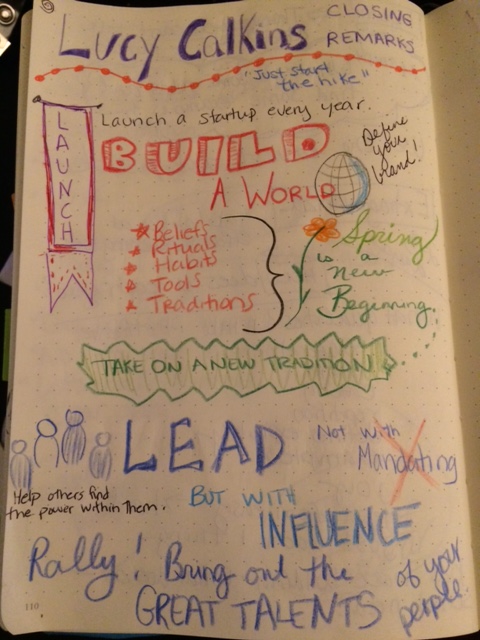 Lucy Calkins CLOSING
REMARKS
"Just start
the hike"
LAUNCH
Launch a startup every year.
BUILD
A WORLD
Define
your
brand!
Beliefs
Rituals
Habits
Tools
Traditions
Spring
is a
new
Beginning.
TAKE ON A NEW TRADITION
LEAD
Not with
Mandating
Help others find
the power within them.
BUT WITH
INFLUENCE
Rally! Bring out the
GREAT TALENTS
of your
people.
110